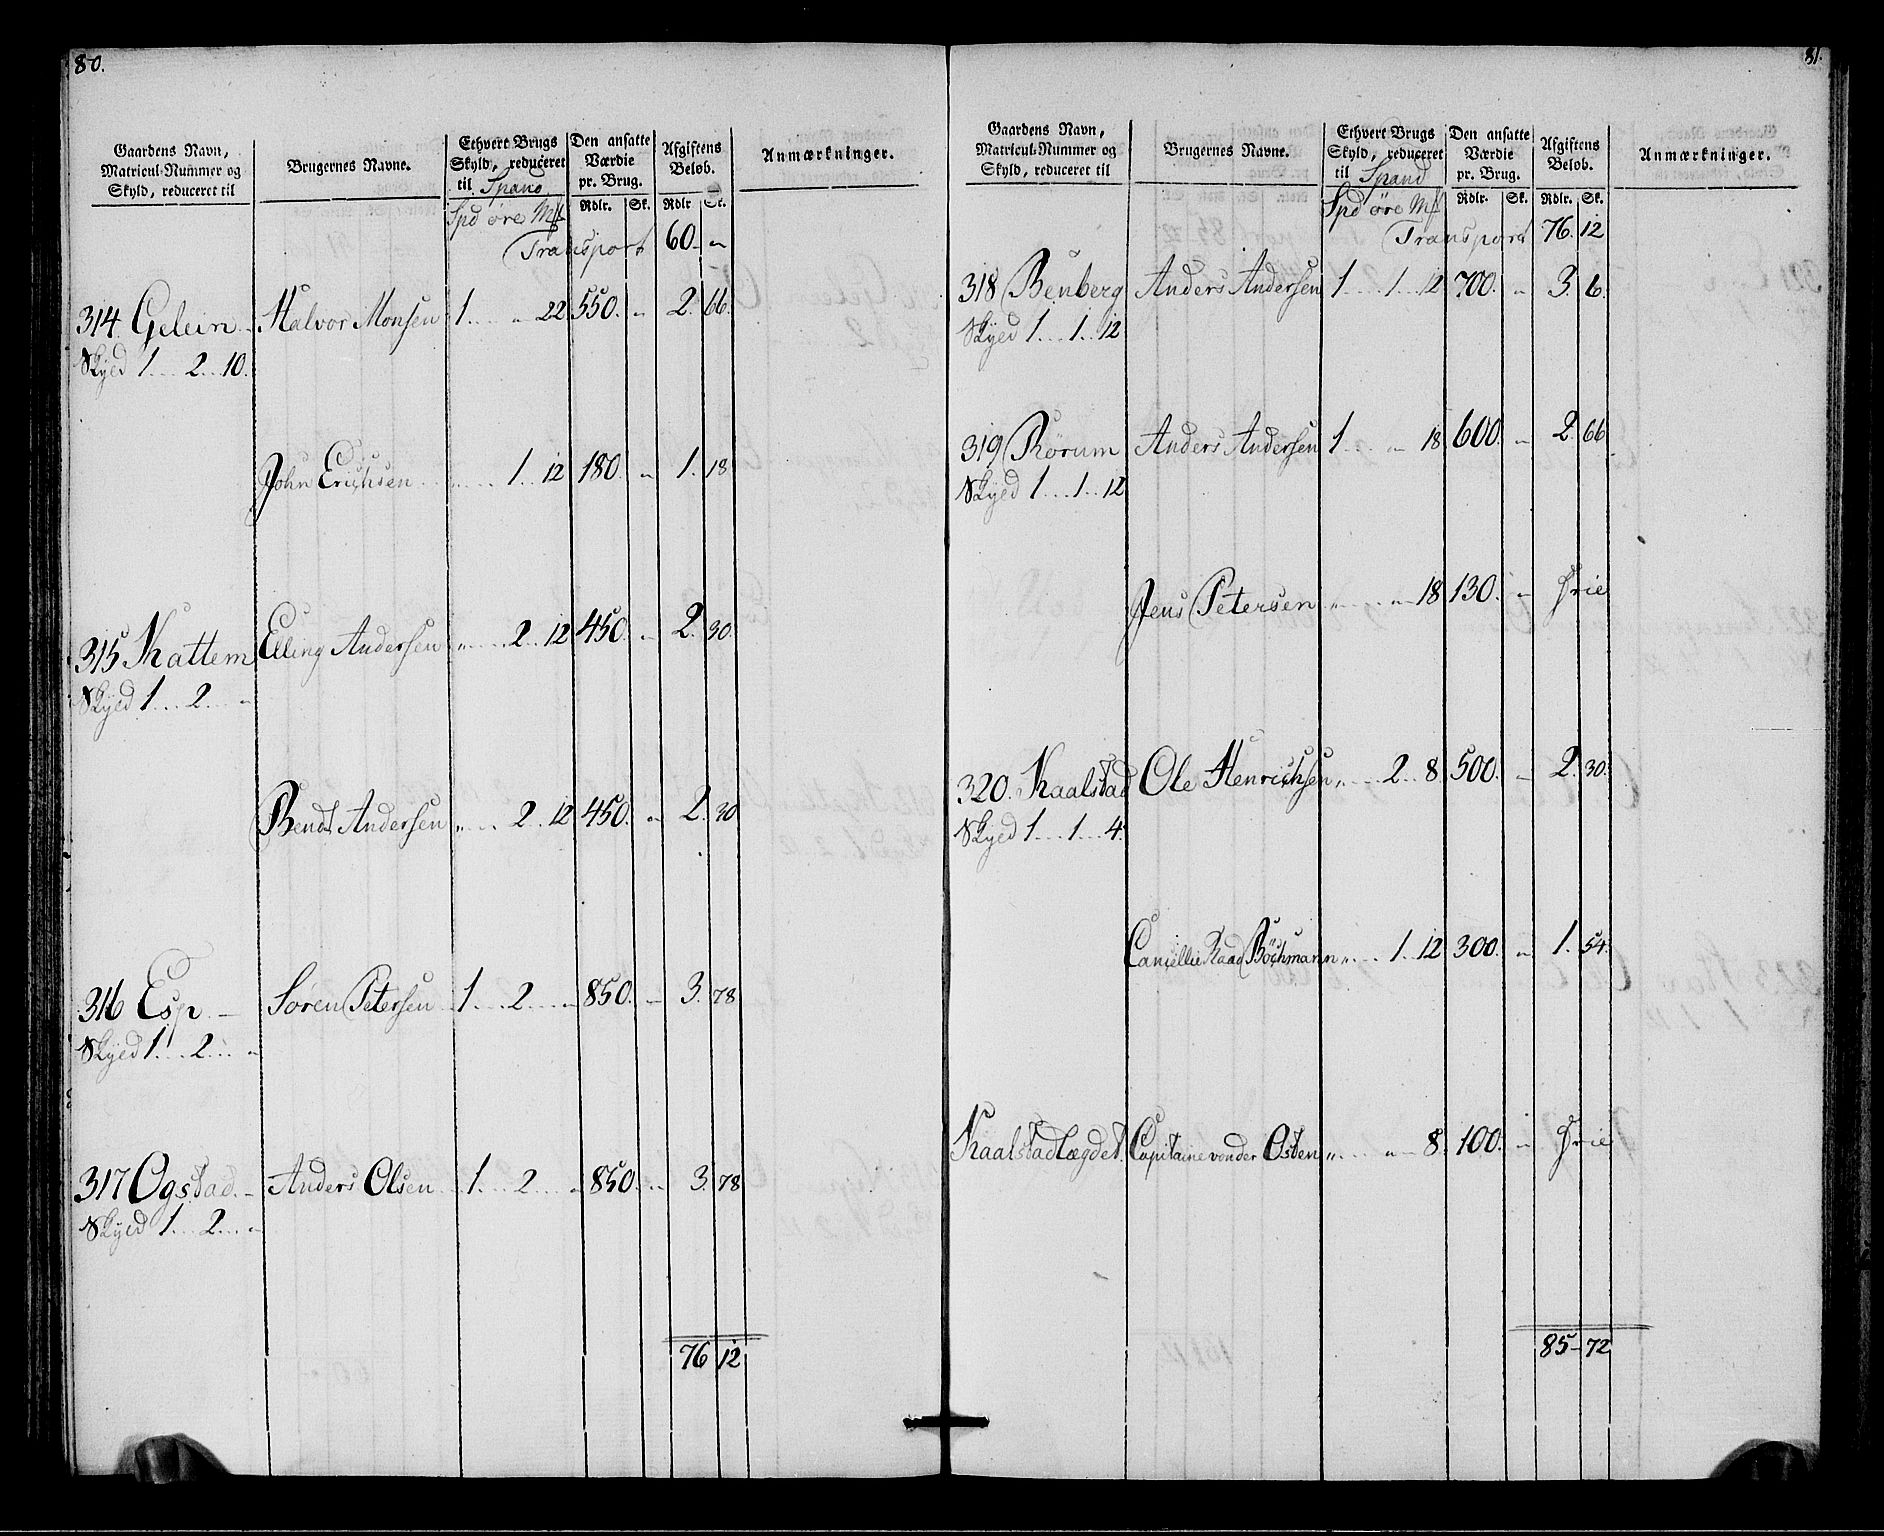 80.
Gaardens Navn, Matricul-Nummer og Skyld, reduceret til
Brugernes Navne.
Ethvert Brugs Skyld, reduceret til Spand
Den ansatte Værdie pr. Brug.
Afgiftens Beløb.
Anmærkninger.
Spd øre Mk Rdlr. Sk. Rdlr Sk.
Transport 60. "
314 Gelein Halvor Monsen 1 " 22 550. " 2. 66.
Skyld 1 2 10.
John Erichsen 1 12 180. " 1. 18
315 Kattem Elling Andersen " 2 12 450. " 2. 30.
Skyld 1 2 "
Bendt Andersen " 2 12 450. " 2. 30
316 Esp Søren Petersen 1 2 " 850. " 3. 78
Skyld 1 2 "
317 Ogstad Anders Olsen 1 2 " 850. " 3. 78
Skyld 1 2 "
76 12
81.
Gaardens Navn, Matricul-Nummer og Skyld, reduceret til
Brugernes Navne.
Ethvert Brugs Skyld, reduceret til Spand
Den ansatte Værdie pr. Brug.
Afgiftens Beløb.
Anmærkninger.
Spd øre Mk Rdlr. Sk. Rdlr. Sk.
Transport 76. 12
318 Benberg Anders Andersen 1 1 12 700. " 3. 6.
Skyld 1 1 12
319 Rørum Anders Andersen 1 " 18 600. " 2. 66
Skyld 1 1 12
Jens Petersen " " 18 130. " frie
320. Kaalstad Ole Henrichsen " 2 8 500. " 2. 30.
Skyld 1 1 4.
Cancellie Raad Böchmann " 1 12 300. " 1. 54.
Kaalstadlægdet. Capitaine von der Osten " " 8 100. " frie
85 72